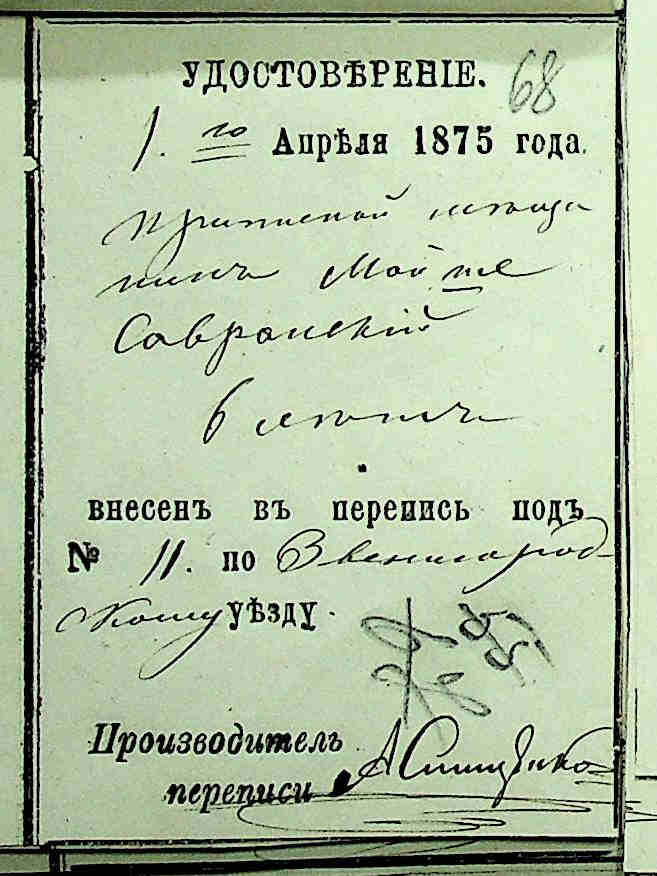 УДОСТОВѢРЕНІЕ. 68
1.го Апрѣля 1875 года.
приписной мѣща
нинъ Мойше
Савранскій
6 лѣтъ
внесенъ въ перепись подъ
№ 11. по Звенигород-
скому уѣзду.
Производитель
переписи